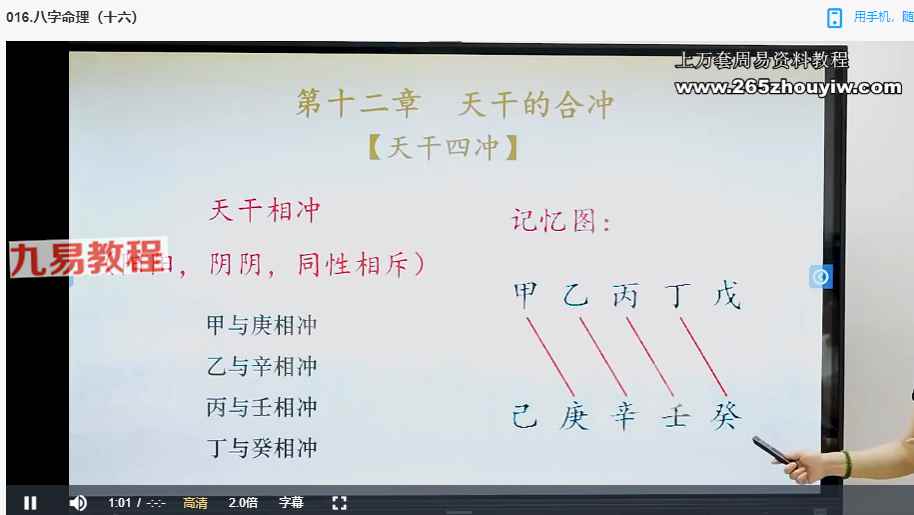 016.八字命理（十六）
用手机，随
上万套周易资料教程
www.265zhouyiw.com
第十二章 天干的合冲
【天干四冲】
天干相冲
九易教程
，阴阴，同性相斥）
甲与庚相冲
乙与辛相冲
丙与壬相冲
丁与癸相冲
记忆图：
甲 乙 丙 丁 戊
己 庚 辛 壬 癸
1:01 / -:-:-
高清
2.0倍
字幕